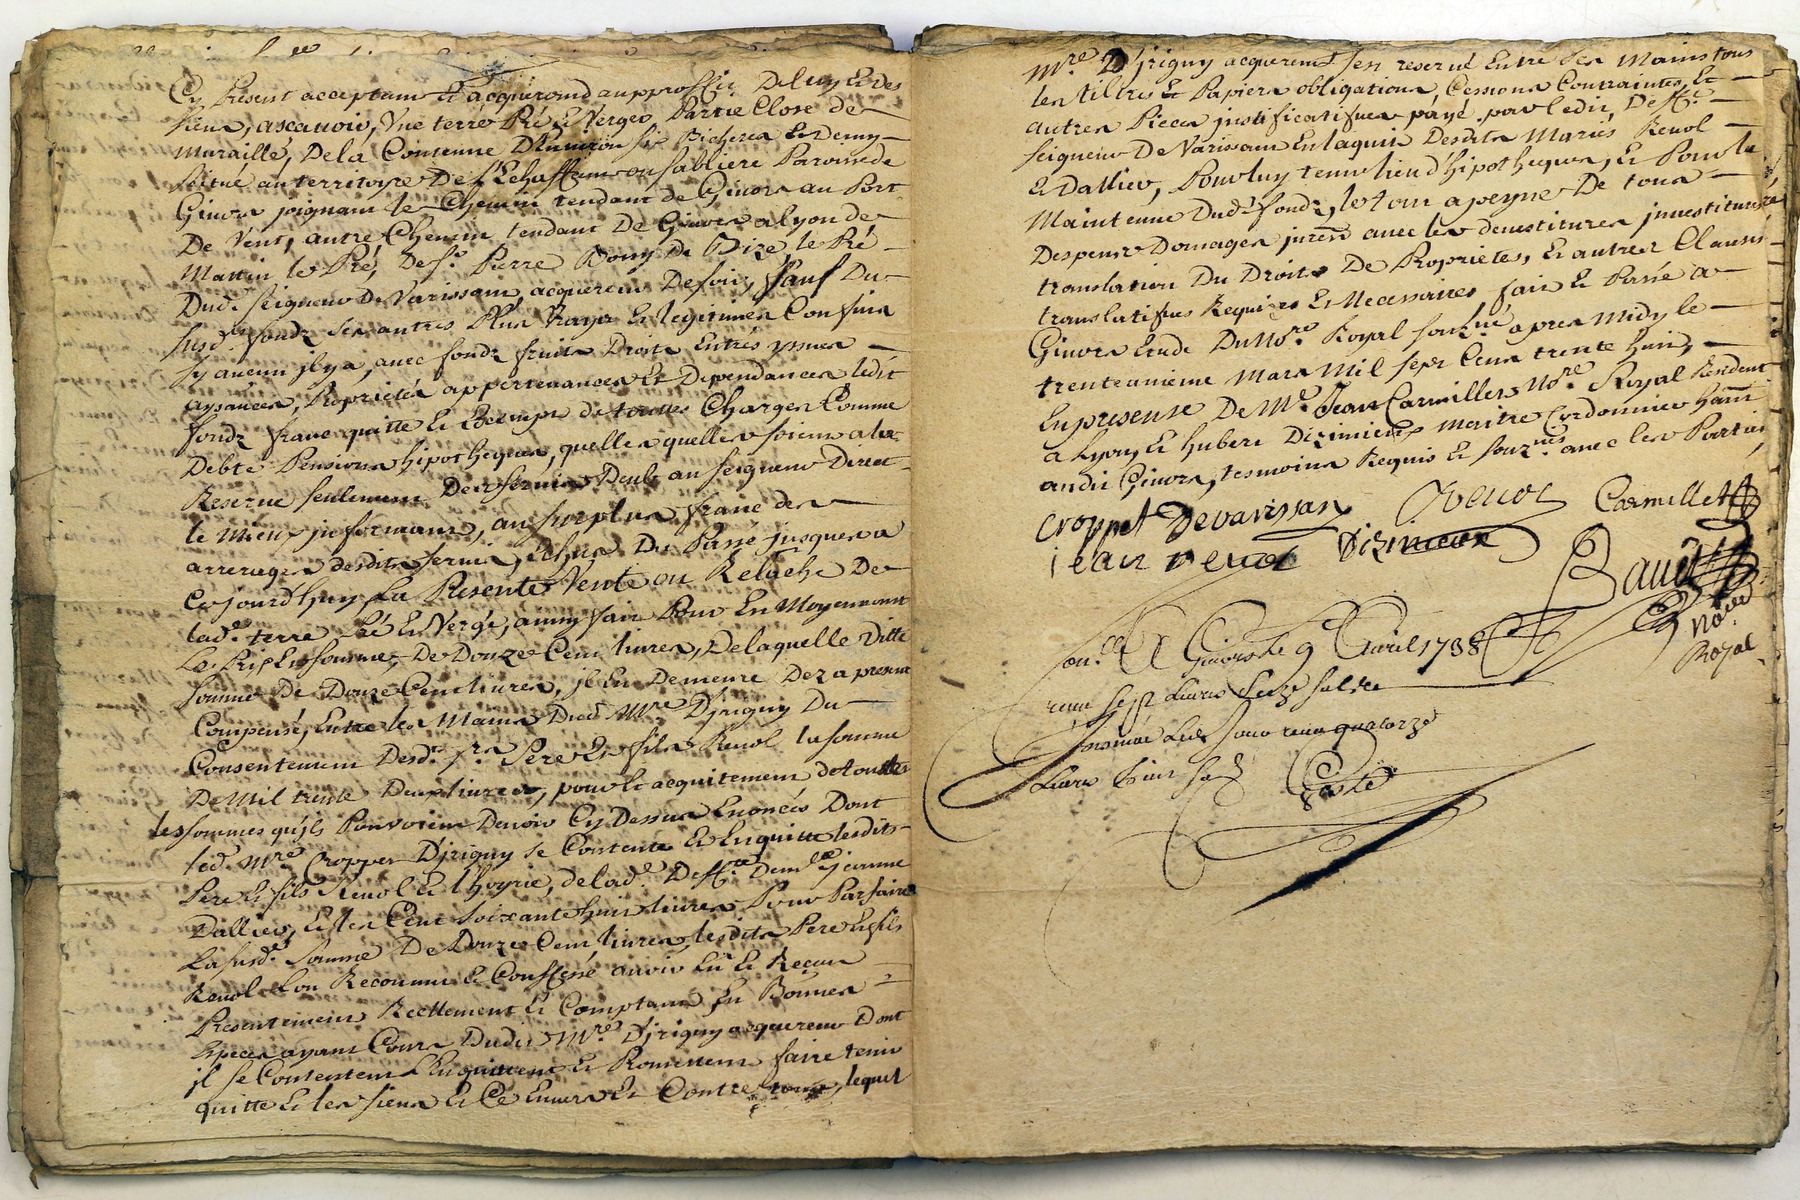 Cy Present acceptant Et acquerand au proffit De luy Et des
siens, ascauoir, Vne terre Pré Et Verger Partie Close de
muraille, De la Contenue D'Enuiron six Bicherées Et Demy
scitué au territoire De l'Echaffaut ou sabliere Paroisse de
Giuors joignant le Chemin tendant de Giuors au Port
De Vent, autre Chemin tendant De Giuors a lyon de
Matin le Pré De sr. Pierre Bony De Bize le Pré
Dud. seigneur De Varissan acquereur De soir, sauf Du
susd. fondz ses autres Plus Vrays Et legitimes Confins
sy aucun il y a, auec fondz fruits Droits Entrés yssues
aysances, Proprietés appertenances Et Dependances ledit
fondz franc quitte Et Exempt de touttes Charges Comme
Debte Pensions hipotheques, quelles quelles soient a la
Reserue seulement Des seruis Deubs au seigneur Direct
le Mieux jnformant, au surplus franc des
arrerages desdits seruis, Echus Du Passé jusques a
Cejourd'huy La Presente Vente ou Relache De
lad. terre Pré Et Verger, ainsy fait Pour Et Moyennant
Le Prix Et somme, De Douze Cent liures, De laquelle Ditte
somme De Douze Cent liures, jl En Demeure Dez a present
Compensé, Entre les Mains Dud. Mre D'jrigny Du
Consentement Desd. srs Pere Et fils Reuol la somme
De Mil trente Deux liures, pour le acquitement de touttes
les sommes qu'ils Pouvoient Deuoir Cy Dessus Enoncés Dont
led. Mre Croppet D'jrigny se Contente Et En quitte lesdits
Pere Et fils Reuol Et l'hoyrie, de lad. Deffte. Demlle jeanne
Dallier, Et les Cent soixante huit liures Pour Parfaire
La susd. somme De Douze Cent liures, lesdits Pere Et fils
Reuol L'ont Reconnu Et Confessé auoir Eu Et Reçeu
Presentement Reellement Et Comptant En Bonnes
Especes ayant Cours Dudit Mre. D'jrigny acquereur Dont
jl se Contentent L'En quittent Et Promettent faire tenir
quitte Et les siens Et Ce Enuers Et Contre tous, lequel
Mre D'jrigny acquereur s'est reserué Entre ses Mains tous
les tiltres Et Papiers obligations, Cessions Contraintes, Et
autres Pieces justificatifues payé par ledit Defft
seigneur De Varissan En l'aquit Desdits Mariés Reuol
Et Dallier, Pour luy tenir lieu d'hipotheques, Et Pour la
Maintenue Dud. fondz, le tout a peyne De tous
Despens Domages jnterests auec les deuestitures jnuestitures
translation Du Droits De Proprietes, Et autres Clauses
translatifues Requises Et Necessaires fait Et Passé a
Giuors Etude Du Nore. Royal souzné apres Midy le
trente unieme Mars Mil sept Cent trente huit,
En presense De Me. Jean Carmillet Nore Royal Resident
a Lyon, Et hubert Dizimieux maitre Cordonnier habitant
audit Giuors, tesmoins Requis Et souznés auec les Parties
Croppet Devarissan Reuol Carmillet
jean reuol Dizimieux
Baud
Nore
Royal
Con.lle A Giuors le 9e Auril 1738
reçu sept Liures Seize sols
Insinué Led. Jour reçu quatorze
Liures huit sols
Coste